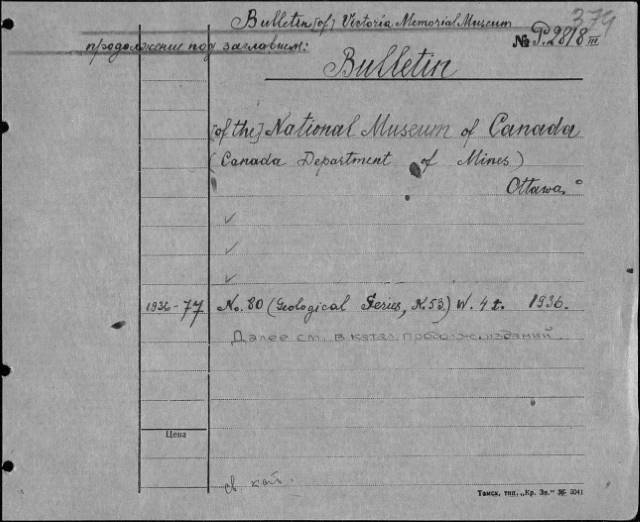 Bulletin [of] Victoria Memorial Museum
374
продолжение под заглавием:
№ P.2818 III
Bulletin
[of the] National Museum of Canada
(Canada Department of Mines)
Ottawa.
✓
✓
✓
1936-77 No. 80 (Geological Series, N.53.) W. 4t. 1936.
Далее см. в катал. продолж. изданий.
Цена
см кат.
Томск, тип. „Кр. Зн.“ № 3041